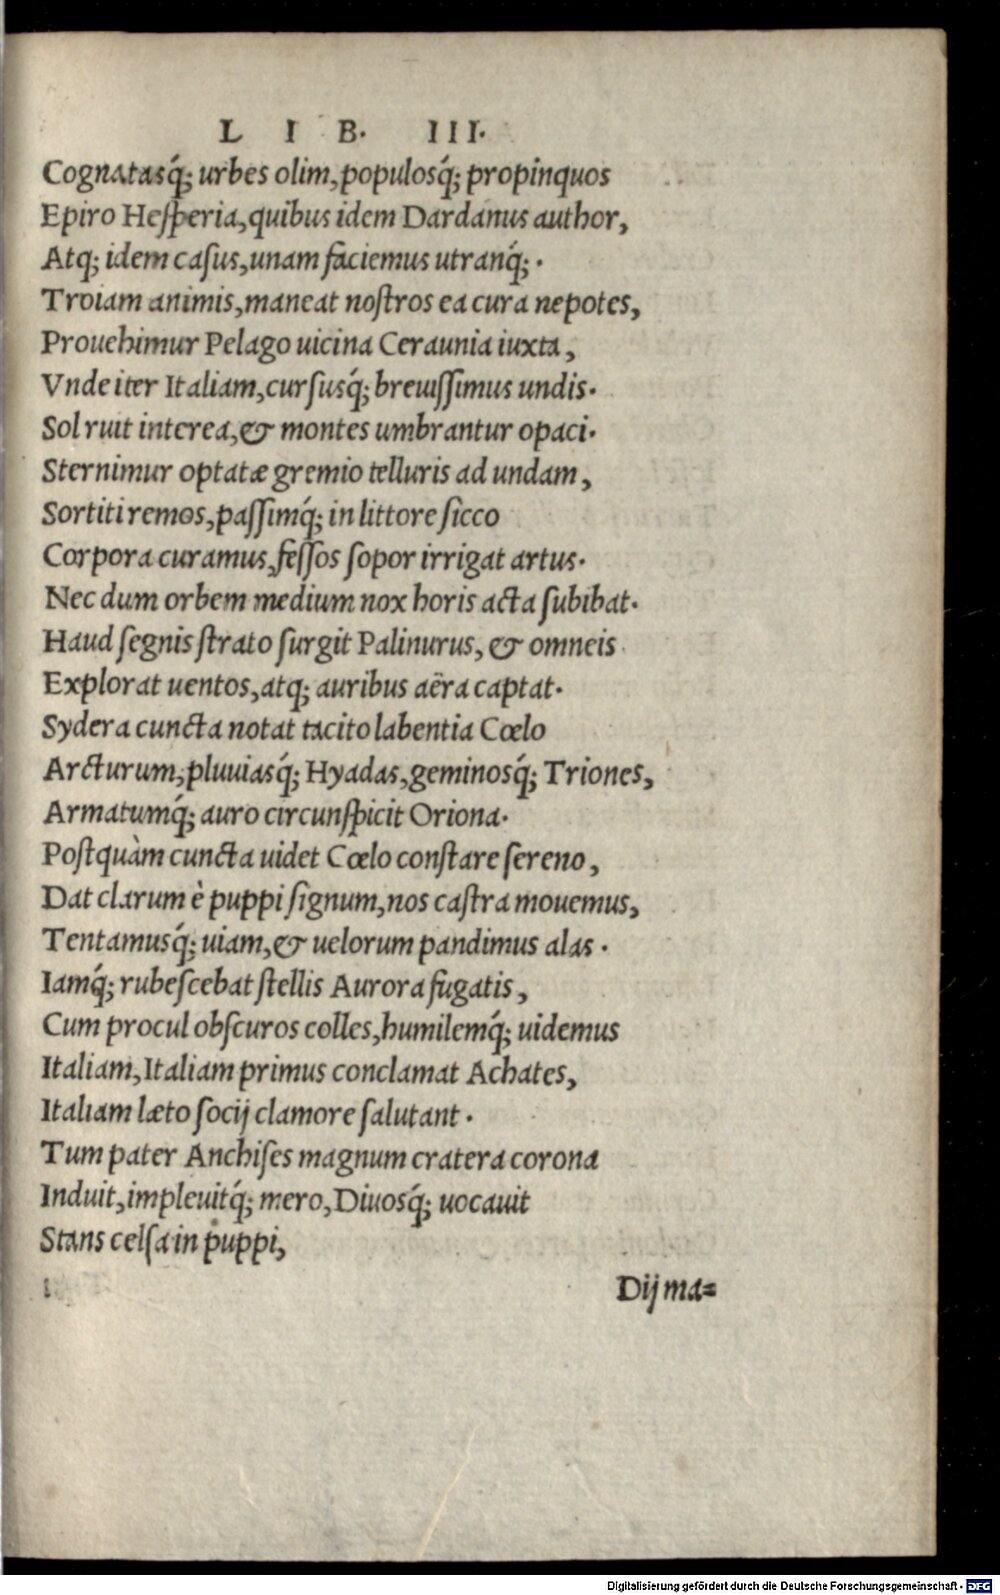 L I B. III.
Cognatasq́; urbes olim, populosq́; propinquos
Epiro Heſperia, quibus idem Dardanus author,
Atq; idem caſus, unam faciemus utranq́; .
Troiam animis, maneat noſtros ea cura nepotes,
Prouehimur Pelago uicina Ceraunia iuxta,
Vnde iter Italiam, curſusq́; breuiſſimus undis.
Sol ruit interea, & montes umbrantur opaci.
Sternimur optatæ gremio telluris ad undam,
Sortiti remos, paſſimq́; in littore ſicco
Corpora curamus, feſſos ſopor irrigat artus.
Nec dum orbem medium nox horis acta ſubibat.
Haud ſegnis ſtrato ſurgit Palinurus, & omneis
Explorat uentos, atq; auribus aëra captat.
Sydera cuncta notat tacito labentia Cœlo
Arcturum, pluuiasq́; Hyadas, geminosq́; Triones,
Armatumq́; auro circunſpicit Oriona.
Poſtquàm cuncta uidet Cœlo conſtare ſereno,
Dat clarum è puppi ſignum, nos caſtra mouemus,
Tentamusq́; uiam, & uelorum pandimus alas.
Iamq́; rubeſcebat ſtellis Aurora fugatis,
Cum procul obſcuros colles, humilemq́; uidemus
Italiam, Italiam primus conclamat Achates,
Italiam læto ſocij clamore ſalutant.
Tum pater Anchiſes magnum cratera corona
Induit, impleuitq́; mero, Diuosq́; uocauit
Stans celſa in puppi,
Dij ma=
Digitalisierung gefördert durch die Deutsche Forschungsgemeinschaft - DFG